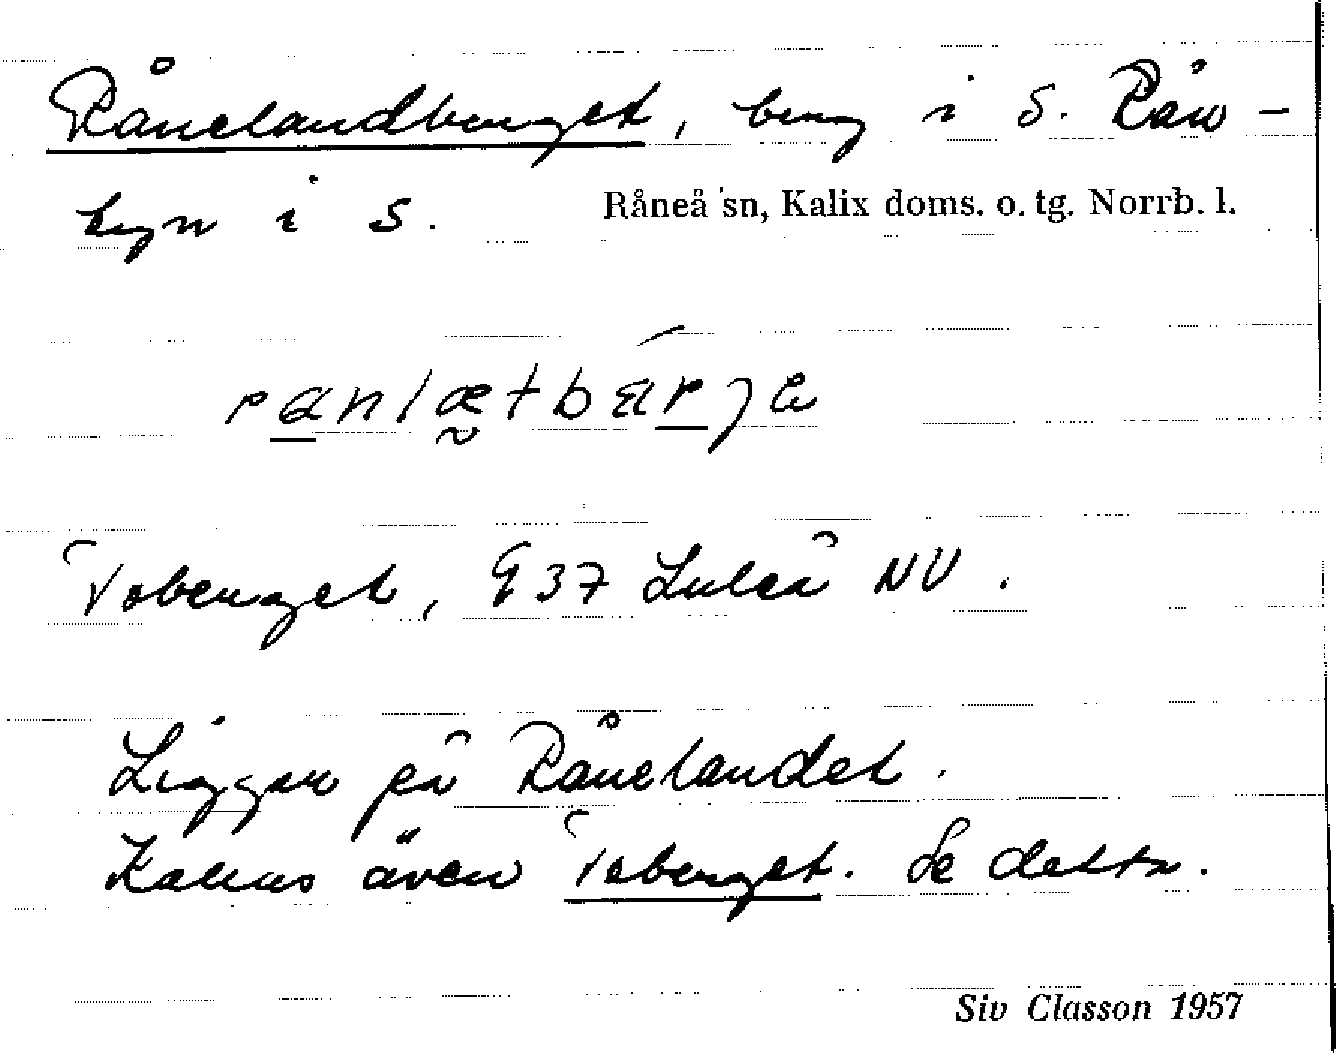 Rånelandberget, berg i S. Rån-
byn i S. Råneå sn, Kalix doms. o. tg. Norrb. l.
ranlætbärje
Toberget, 937 Luleå NV.
Ligger på Rånelandet.
Kallas även Toberget. Se detta.
Siv Classon 1957